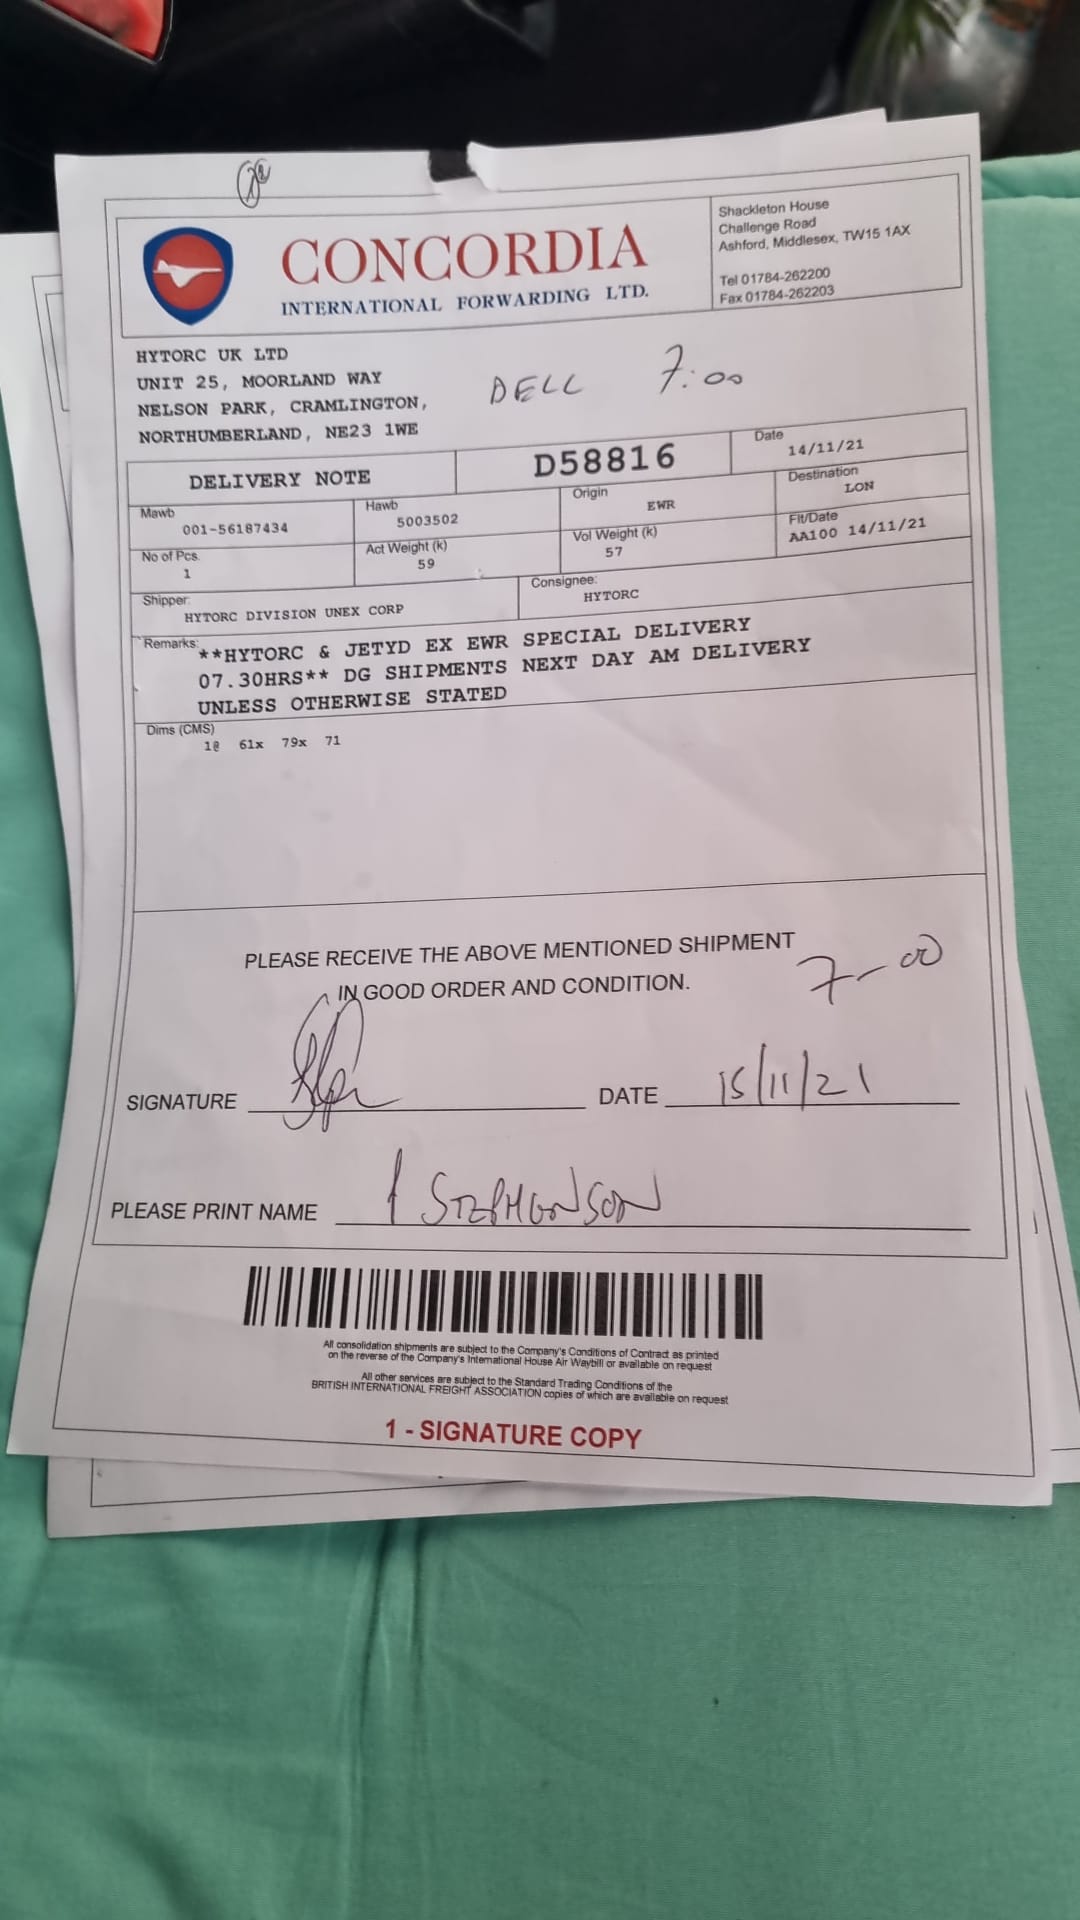 CONCORDIA
INTERNATIONAL FORWARDING LTD.
Shackleton House
Challenge Road
Ashford, Middlesex, TW15 1AX
Tel 01784-262200
Fax 01784-262203
HYTORC UK LTD
UNIT 25, MOORLAND WAY
NELSON PARK, CRAMLINGTON,
NORTHUMBERLAND, NE23 1WE
DELL 7:00
DELIVERY NOTE
D58816
Date
14/11/21
Mawb
001-56187434
Hawb
5003502
Origin
EWR
Destination
LON
No of Pcs.
1
Act Weight (k)
59
Vol Weight (k)
57
Flt/Date
AA100 14/11/21
Shipper:
HYTORC DIVISION UNEX CORP
Consignee:
HYTORC
Remarks:
**HYTORC & JETYD EX EWR SPECIAL DELIVERY
07.30HRS** DG SHIPMENTS NEXT DAY AM DELIVERY
UNLESS OTHERWISE STATED
Dims (CMS)
1@ 61x 79x 71
PLEASE RECEIVE THE ABOVE MENTIONED SHIPMENT
IN GOOD ORDER AND CONDITION.
7-00
SIGNATURE
DATE 15/11/21
PLEASE PRINT NAME STEPHENSON
All consolidation shipments are subject to the Company's Conditions of Contract as printed
on the reverse of the Company's International House Air Waybill or available on request
All other services are subject to the Standard Trading Conditions of the
BRITISH INTERNATIONAL FREIGHT ASSOCIATION copies of which are available on request
1 - SIGNATURE COPY